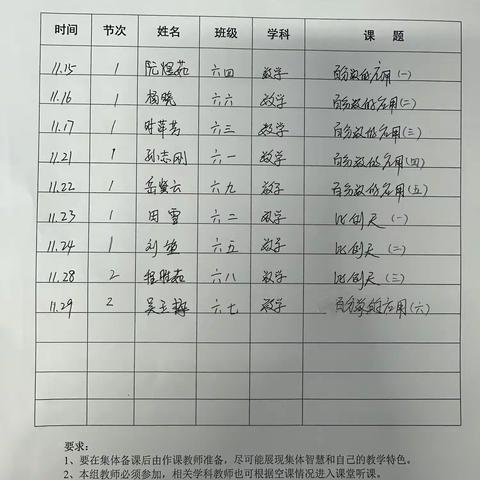 时间 节次 姓名 班级 学科 课 题
11.15 1 阮煜茹 六四 数学 百分数的应用(一)
11.16 1 杨晓 六六 数学 百分数的应用(二)
11.17 1 六三 数学 百分数的应用(三)
11.21 1 孙志刚 六一 数学 百分数的应用(四)
11.22 1 岳 云 六九 数学 百分数的应用(五)
11.23 1 田雪 六二 数学 比例尺 (一)
11.24 1 刘 六五 数学 比例尺 (二)
11.28 2 程 茹 六八 数学 比例尺 (三)
11.29 2 吴玉 六七 数学 百分数的应用(六)
要求:
1、要在集体备课后由作课教师准备，尽可能展现集体智慧和自己的教学特色。
2、本组教师必须参加，相关学科教师也可根据空课情况进入课堂听课。